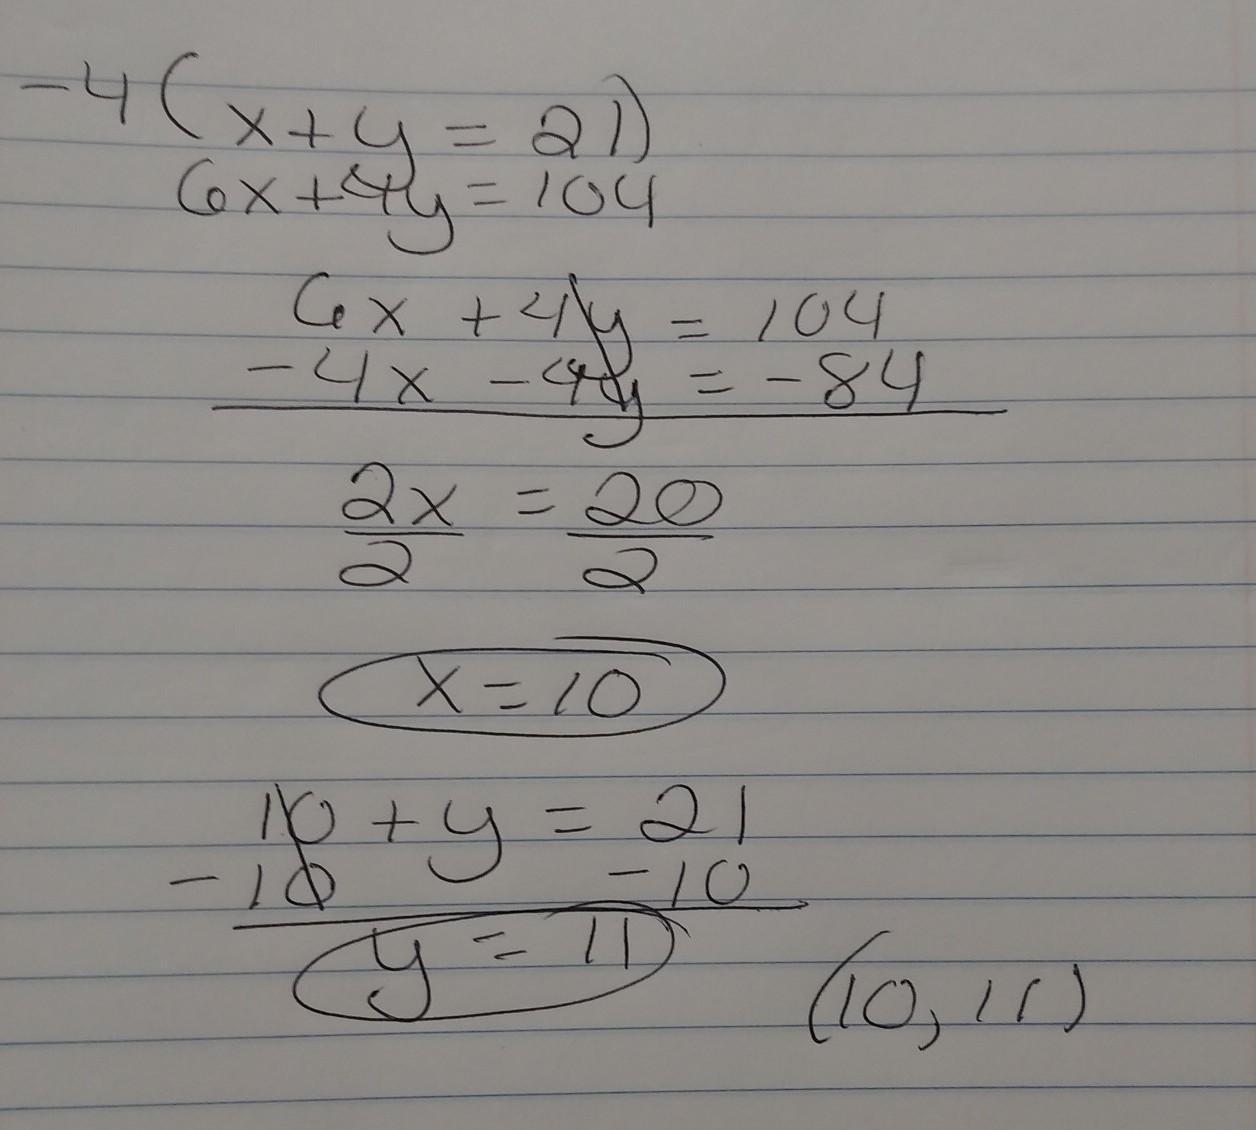 -4(x+y=21)
6x+4y=104
6x+4y=104
-4x-4y=-84
2x=20
2 2
x=10
10+y=21
-10 -10
y=11
(10,11)